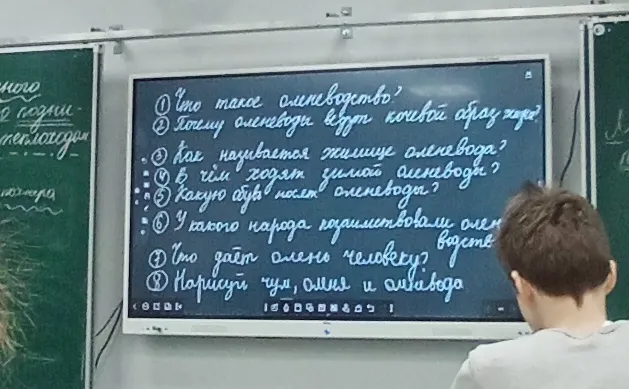 ного
о подни-
теплоходам
① Что такое оленеводство?
② Почему оленеводы ведут кочевой образ жизни?
③ Как называется жилище оленевода?
④ В чём ходят зимой оленеводы?
⑤ Какую обувь носят оленеводы?
⑥ У какого народа позаимствовали олен
водств
⑦ Что даёт олень человеку?
⑧ Нарисуй чум, оленя и оленевода